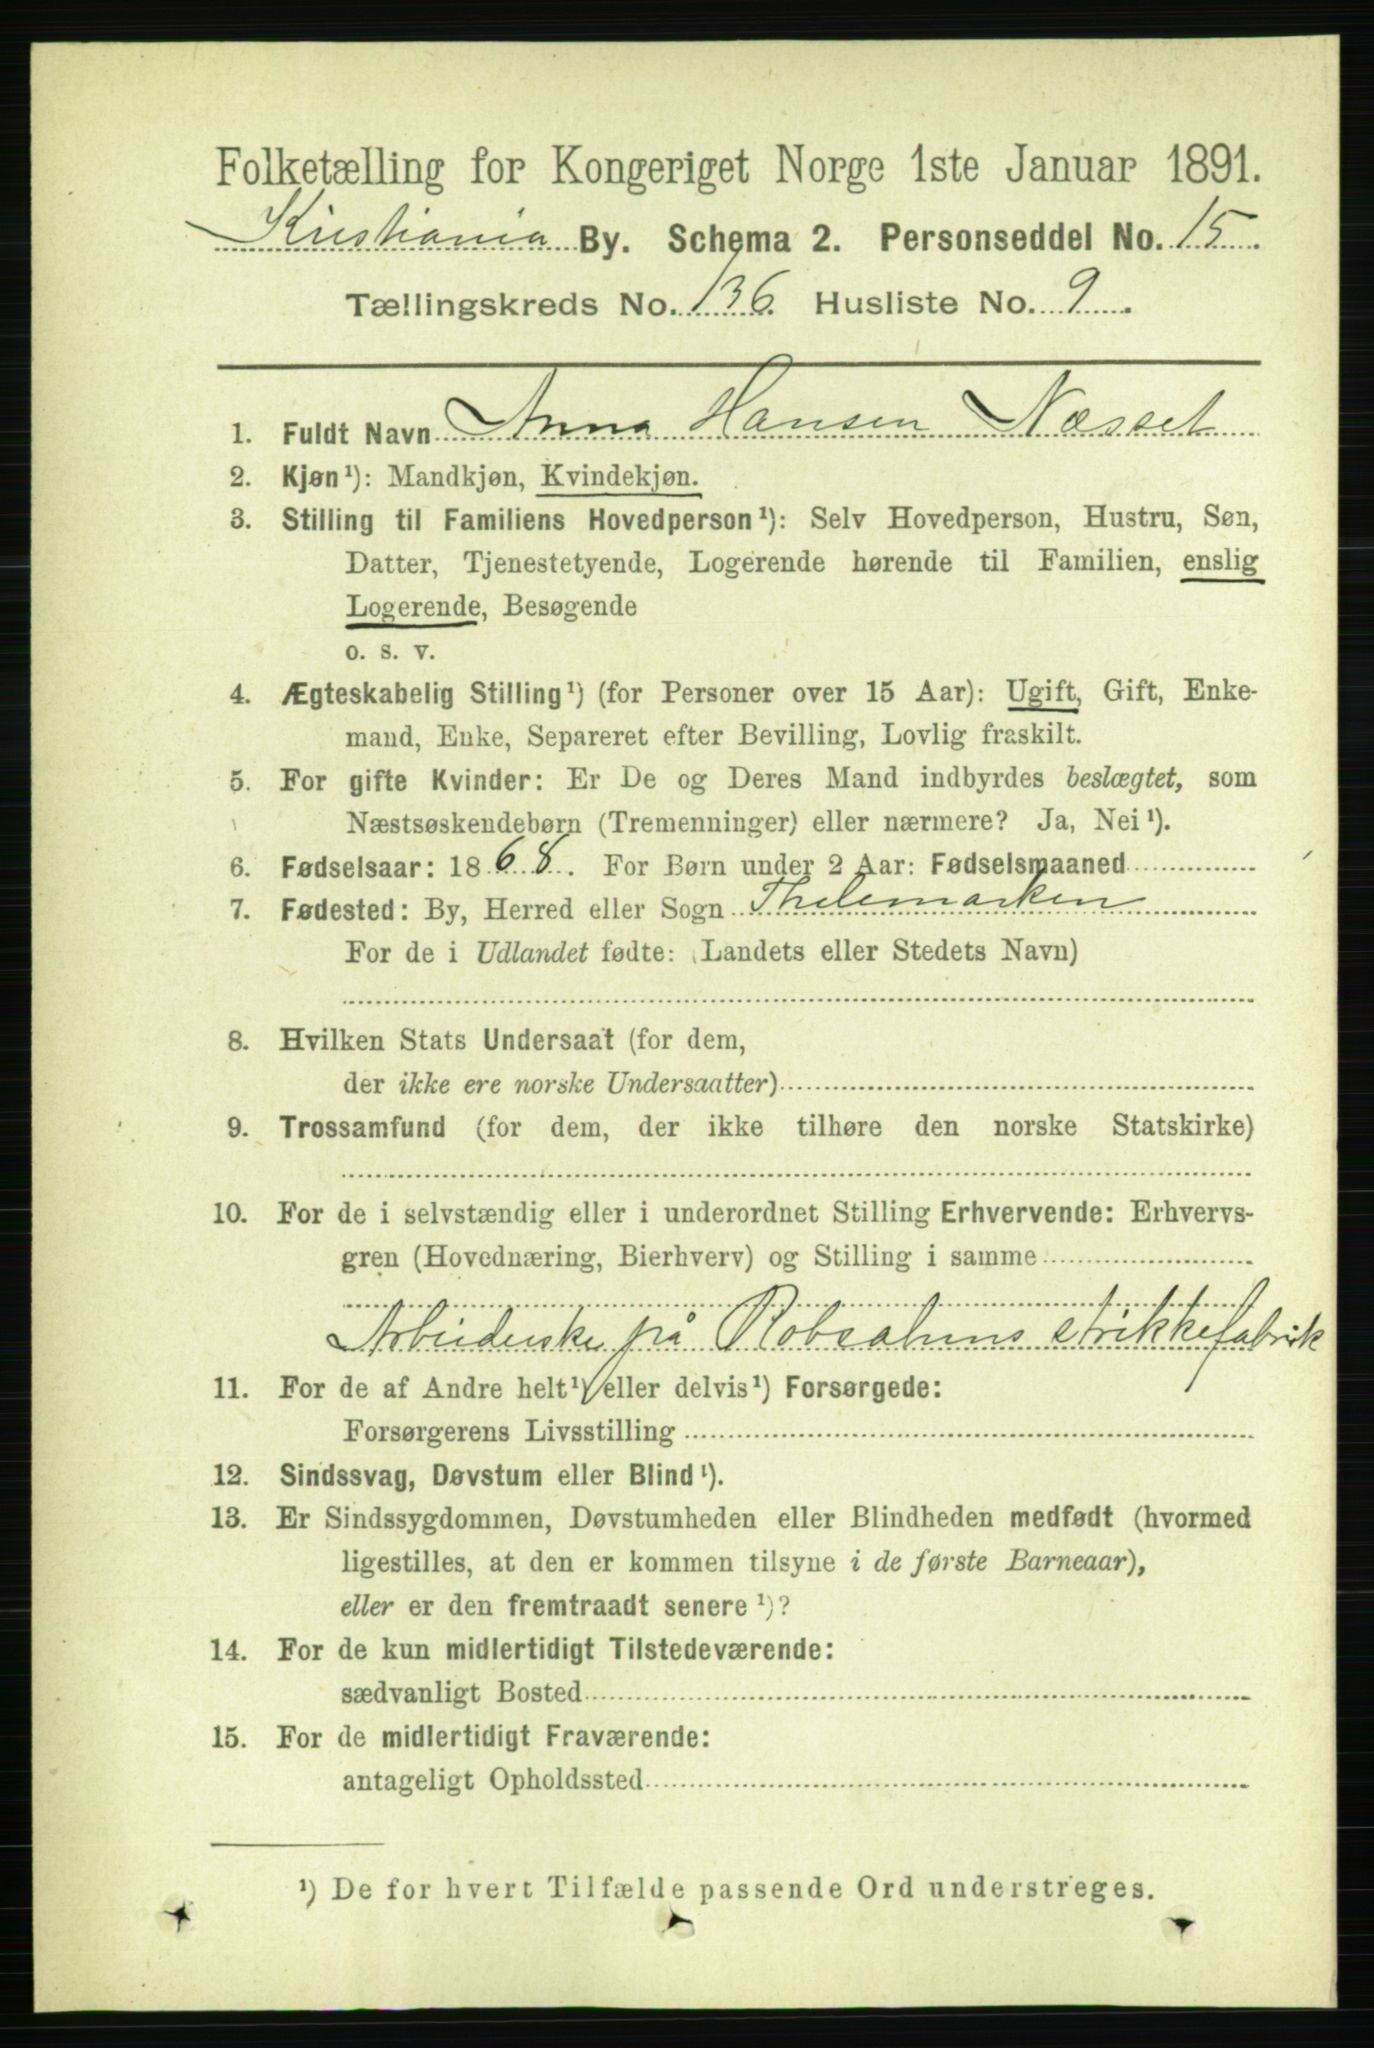 Folketælling for Kongeriget Norge 1ste Januar 1891.
Kristiania By. Schema 2. Personseddel No. 15.
Tællingskreds No. 136. Husliste No. 9.
1. Fuldt Navn Anna Hansen Næsset
2. Kjøn¹): Mandkjøn, Kvindekjøn.
3. Stilling til Familiens Hovedperson¹): Selv Hovedperson, Hustru, Søn,
Datter, Tjenestetyende, Logerende hørende til Familien, enslig
Logerende, Besøgende
o. s. v.
4. Ægteskabelig Stilling¹) (for Personer over 15 Aar): Ugift, Gift, Enke-
mand, Enke, Separeret efter Bevilling, Lovlig fraskilt.
5. For gifte Kvinder: Er De og Deres Mand indbyrdes beslægtet, som
Næstsøskendebørn (Tremenninger) eller nærmere? Ja, Nei¹).
6. Fødselsaar: 1868. For Børn under 2 Aar: Fødselsmaaned
7. Fødested: By, Herred eller Sogn Thelemarken
For de i Udlandet fødte: (Landets eller Stedets Navn)
8. Hvilken Stats Undersaat (for dem,
der ikke ere norske Undersaatter)
9. Trossamfund (for dem, der ikke tilhøre den norske Statskirke)
10. For de i selvstændig eller i underordnet Stilling Erhvervende: Erhvervs-
gren (Hovednæring, Bierhverv) og Stilling i samme
Arbeiderske på Robsahms strikkefabrik
11. For de af Andre helt¹) eller delvis¹) Forsørgede:
Forsørgerens Livsstilling
12. Sindssvag, Døvstum eller Blind¹).
13. Er Sindssygdommen, Døvstumheden eller Blindheden medfødt (hvormed
ligestilles, at den er kommen tilsyne i de første Barneaar),
eller er den fremtraadt senere¹)?
14. For de kun midlertidigt Tilstedeværende:
sædvanligt Bosted
15. For de midlertidigt Fraværende:
antageligt Opholdssted
¹) De for hvert Tilfælde passende Ord understreges.